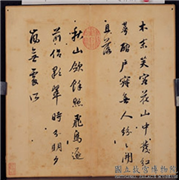 木末芙蓉花山中發紅
萼澗戶寂無人紛紛開
且落
秋山斂餘照飛鳥逐
前侶彩翠時分明夕
嵐無處所